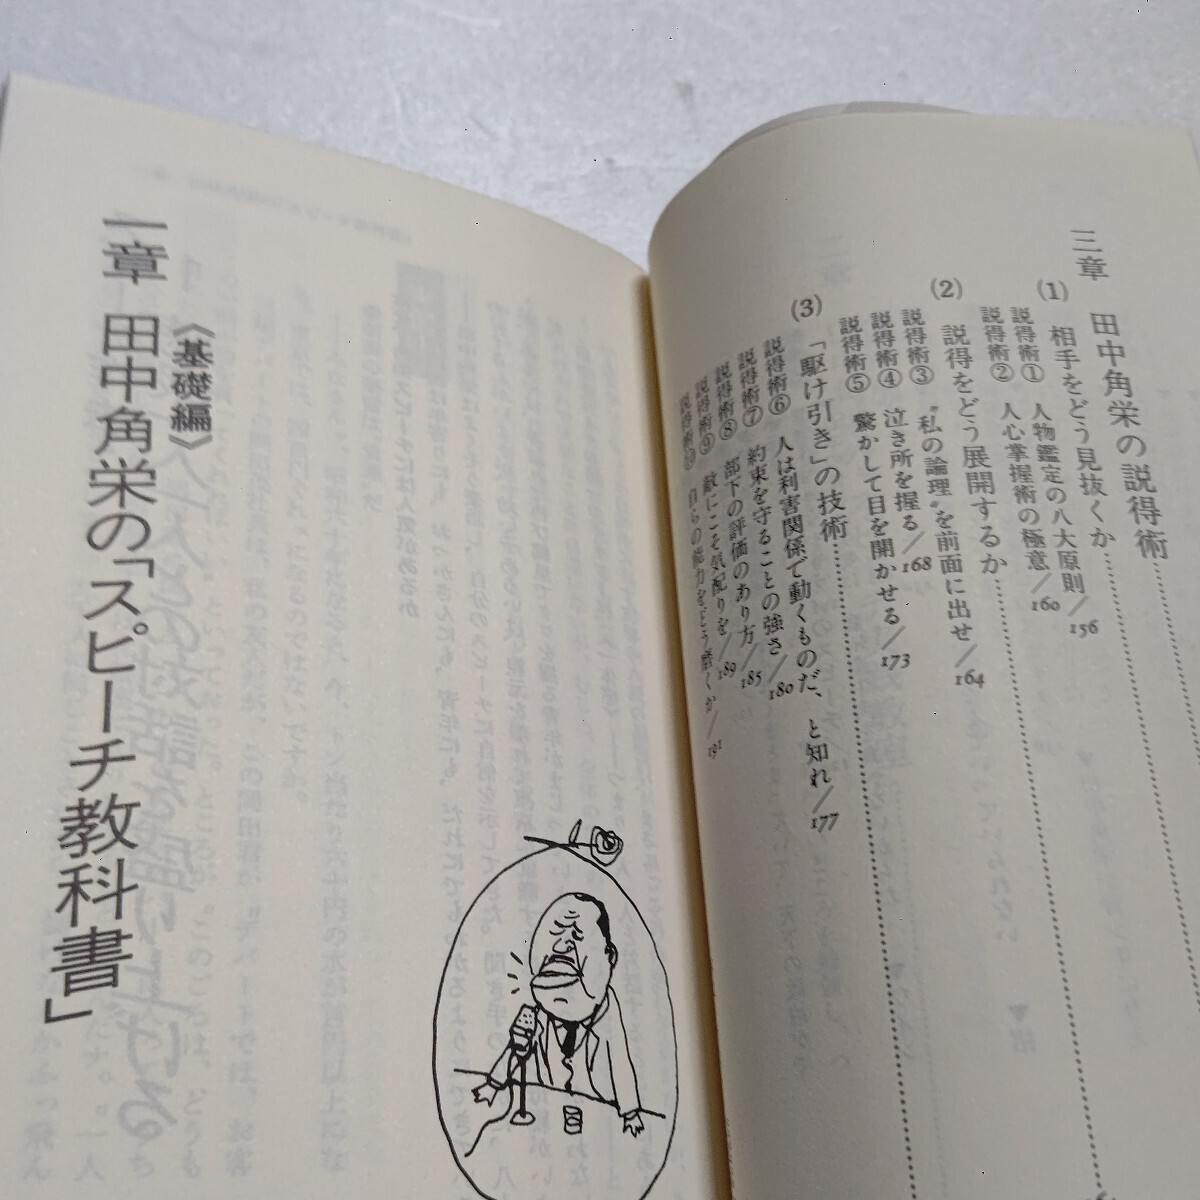 三章　田中角栄の説得術
(1)　相手をどう見抜くか
説得術①　人物鑑定の八大原則／156
説得術②　人心掌握術の極意／160
(2)　説得をどう展開するか
説得術③　〝私の論理〟を前面に出せ／164
説得術④　泣き所を握る／168
説得術⑤　驚かして目を開かせる／173
(3)　「駆け引き」の技術
説得術⑥　人は利害関係で動くものだ、と知れ／177
説得術⑦　約束を守ることの強さ／180
説得術⑧　部下の評価のあり方／185
説得術⑨　敵にこそ気配りを／189
説得術⑩　自らの能力をどう磨くか／191
《基礎編》
一章　田中角栄の「スピーチ教科書」